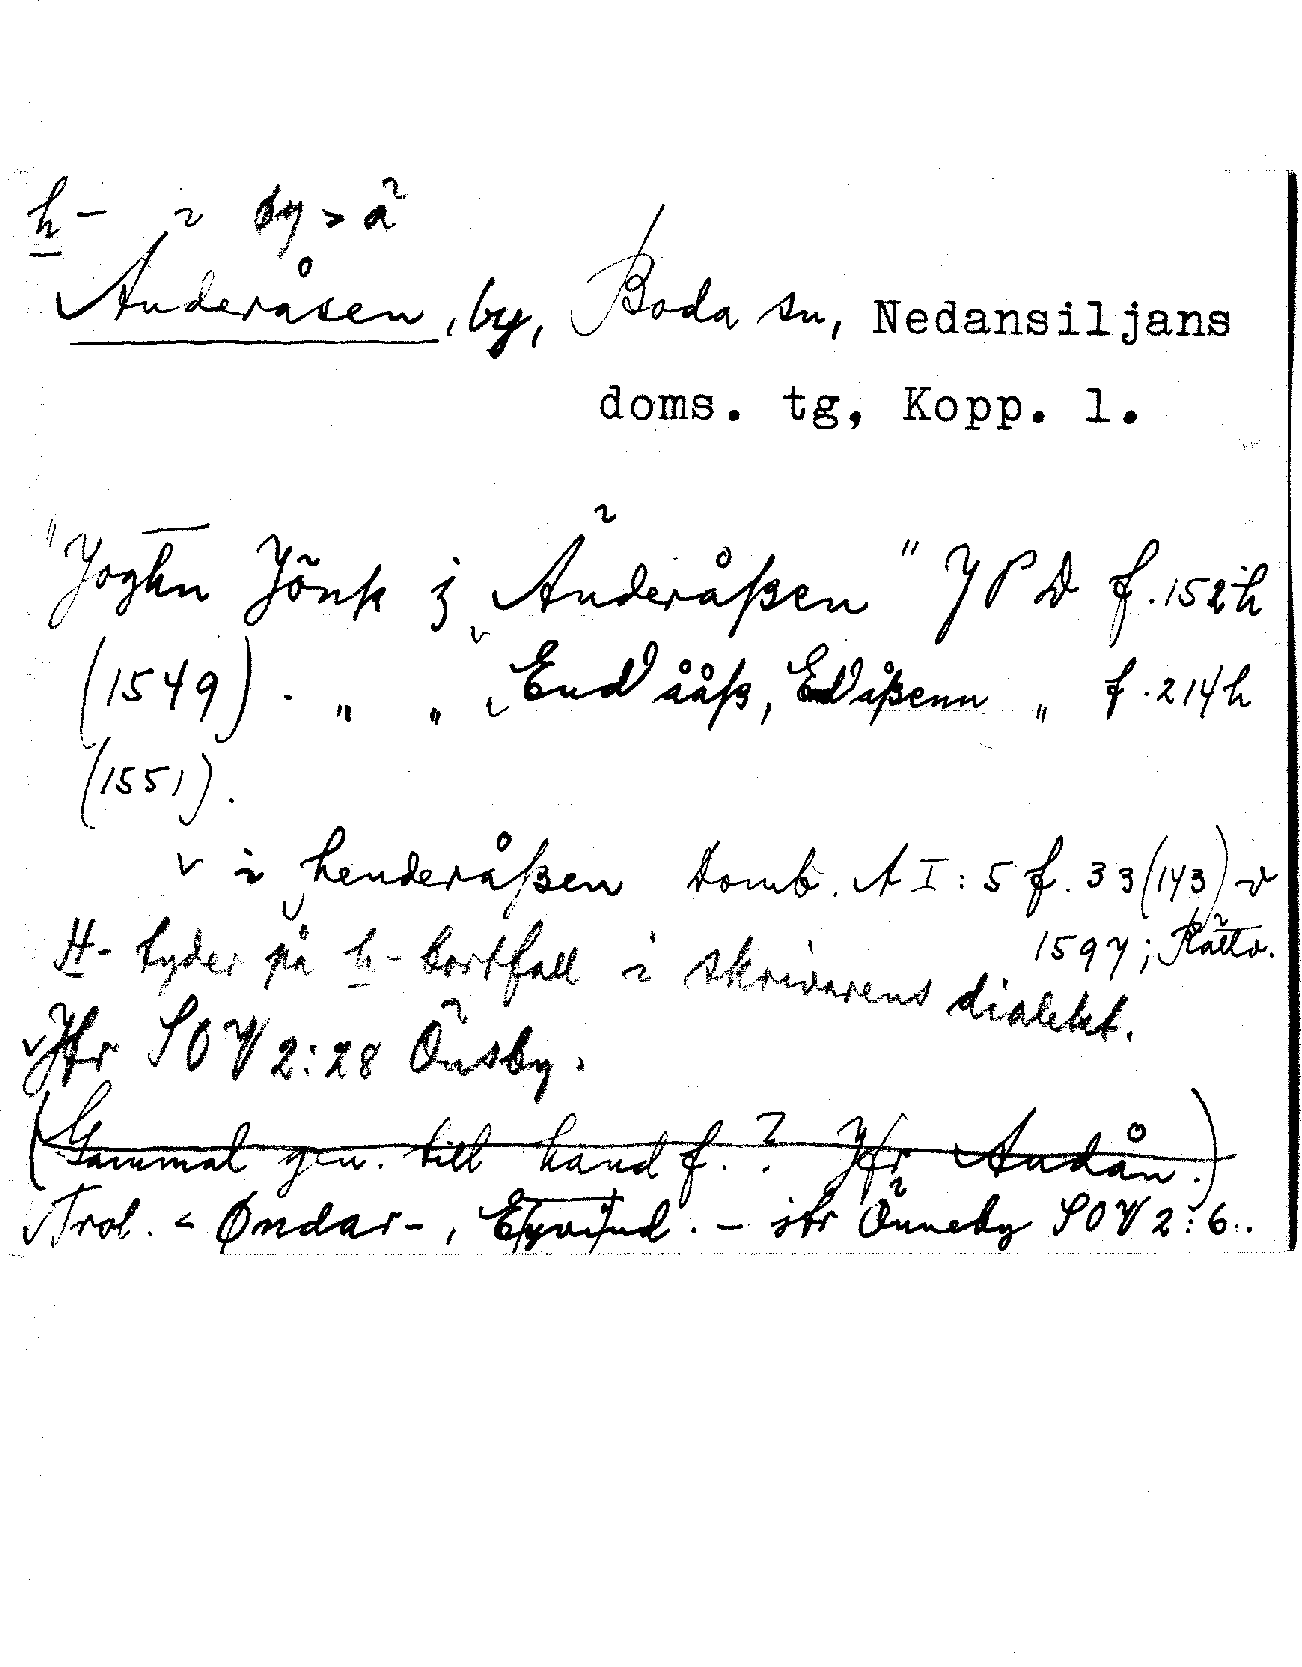 h- i øy > ä
Änderåsen, by, Boda sn, Nedansiljans
doms. tg, Kopp. l.
"Joghn Jönß j Änderåßen" JPD f. 152h
(1549). " " End ååß, Edåßenn " f. 214h
(1551).
i henderåßen Domb. A I:5 f. 33 (143) v
1597; Rättv.
H- tyder på h-bortfall i skrivarens dialekt.
Jfr SOV 2:28 Önsby.
(Gammal gen. till hand f.? Jfr Andån.)
Trol. < Øndar-, Eyvind. - jfr Önneby SOV 2:6.